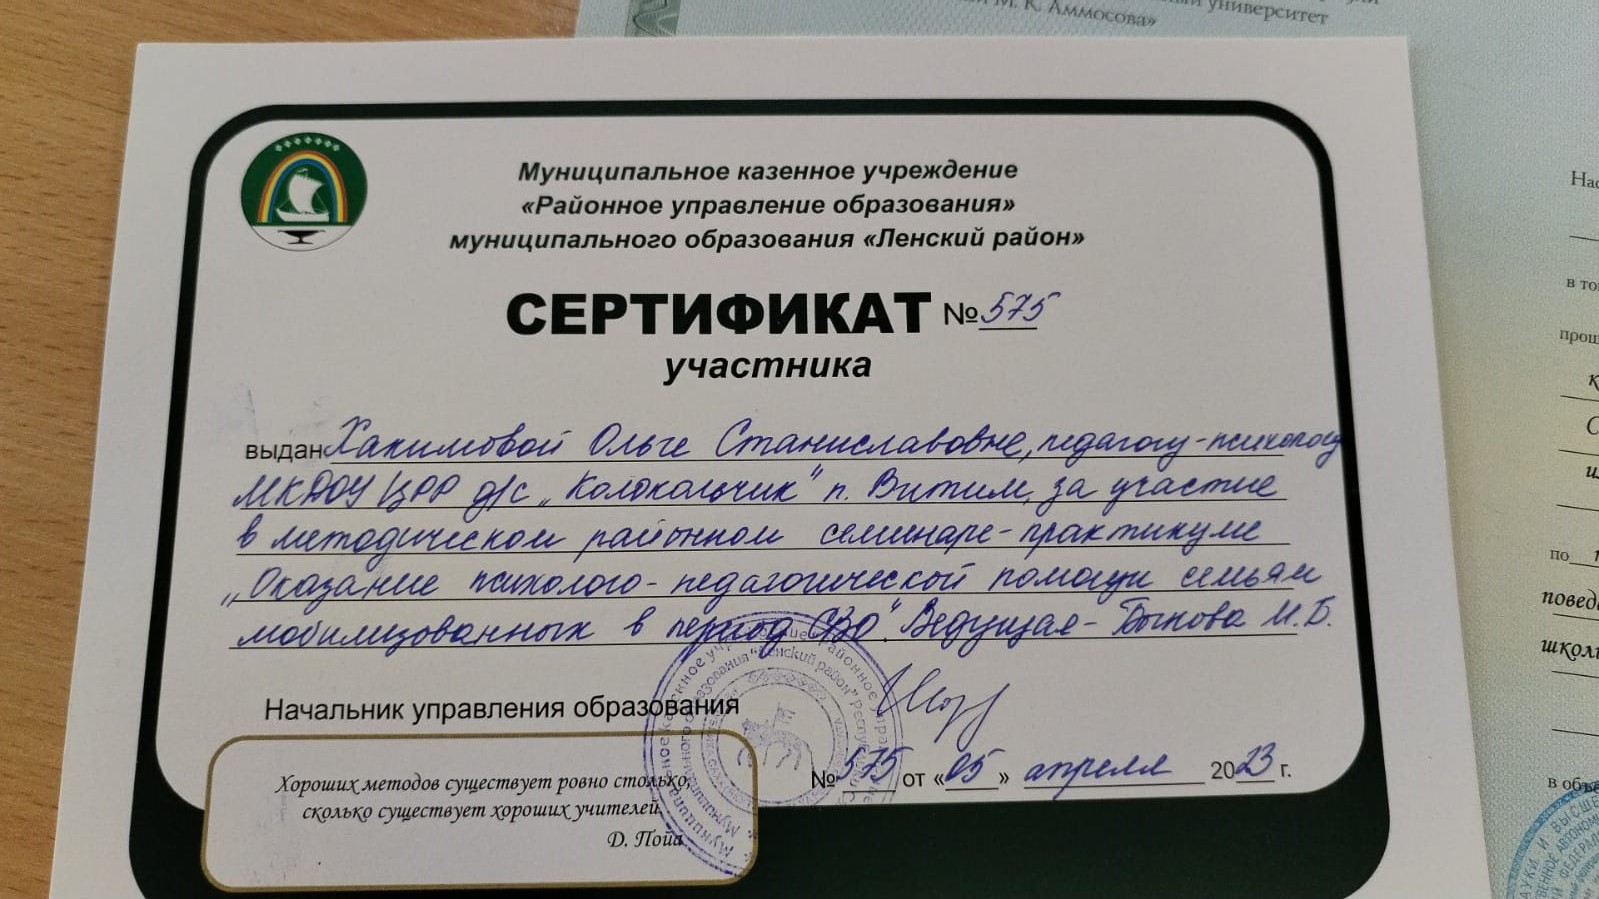 М. К. Аммосова»
университет
Муниципальное казенное учреждение
«Районное управление образования»
муниципального образования «Ленский район»
СЕРТИФИКАТ №575
участника
выдан Хакимовой Ольге Станиславовне, педагогу-психологу
МКДОУ ЦРР д/с „Колокольчик" п. Витим, за участие
в методическом районном семинаре-практикуме
„Оказание психолого-педагогической помощи семьям
мобилизованных в период СВО". Ведущая - Быкова М.Б.
Начальник управления образования
№ 575 от «05» апреля 2023 г.
Хороших методов существует ровно столько,
сколько существует хороших учителей.
Д. Пойа
по